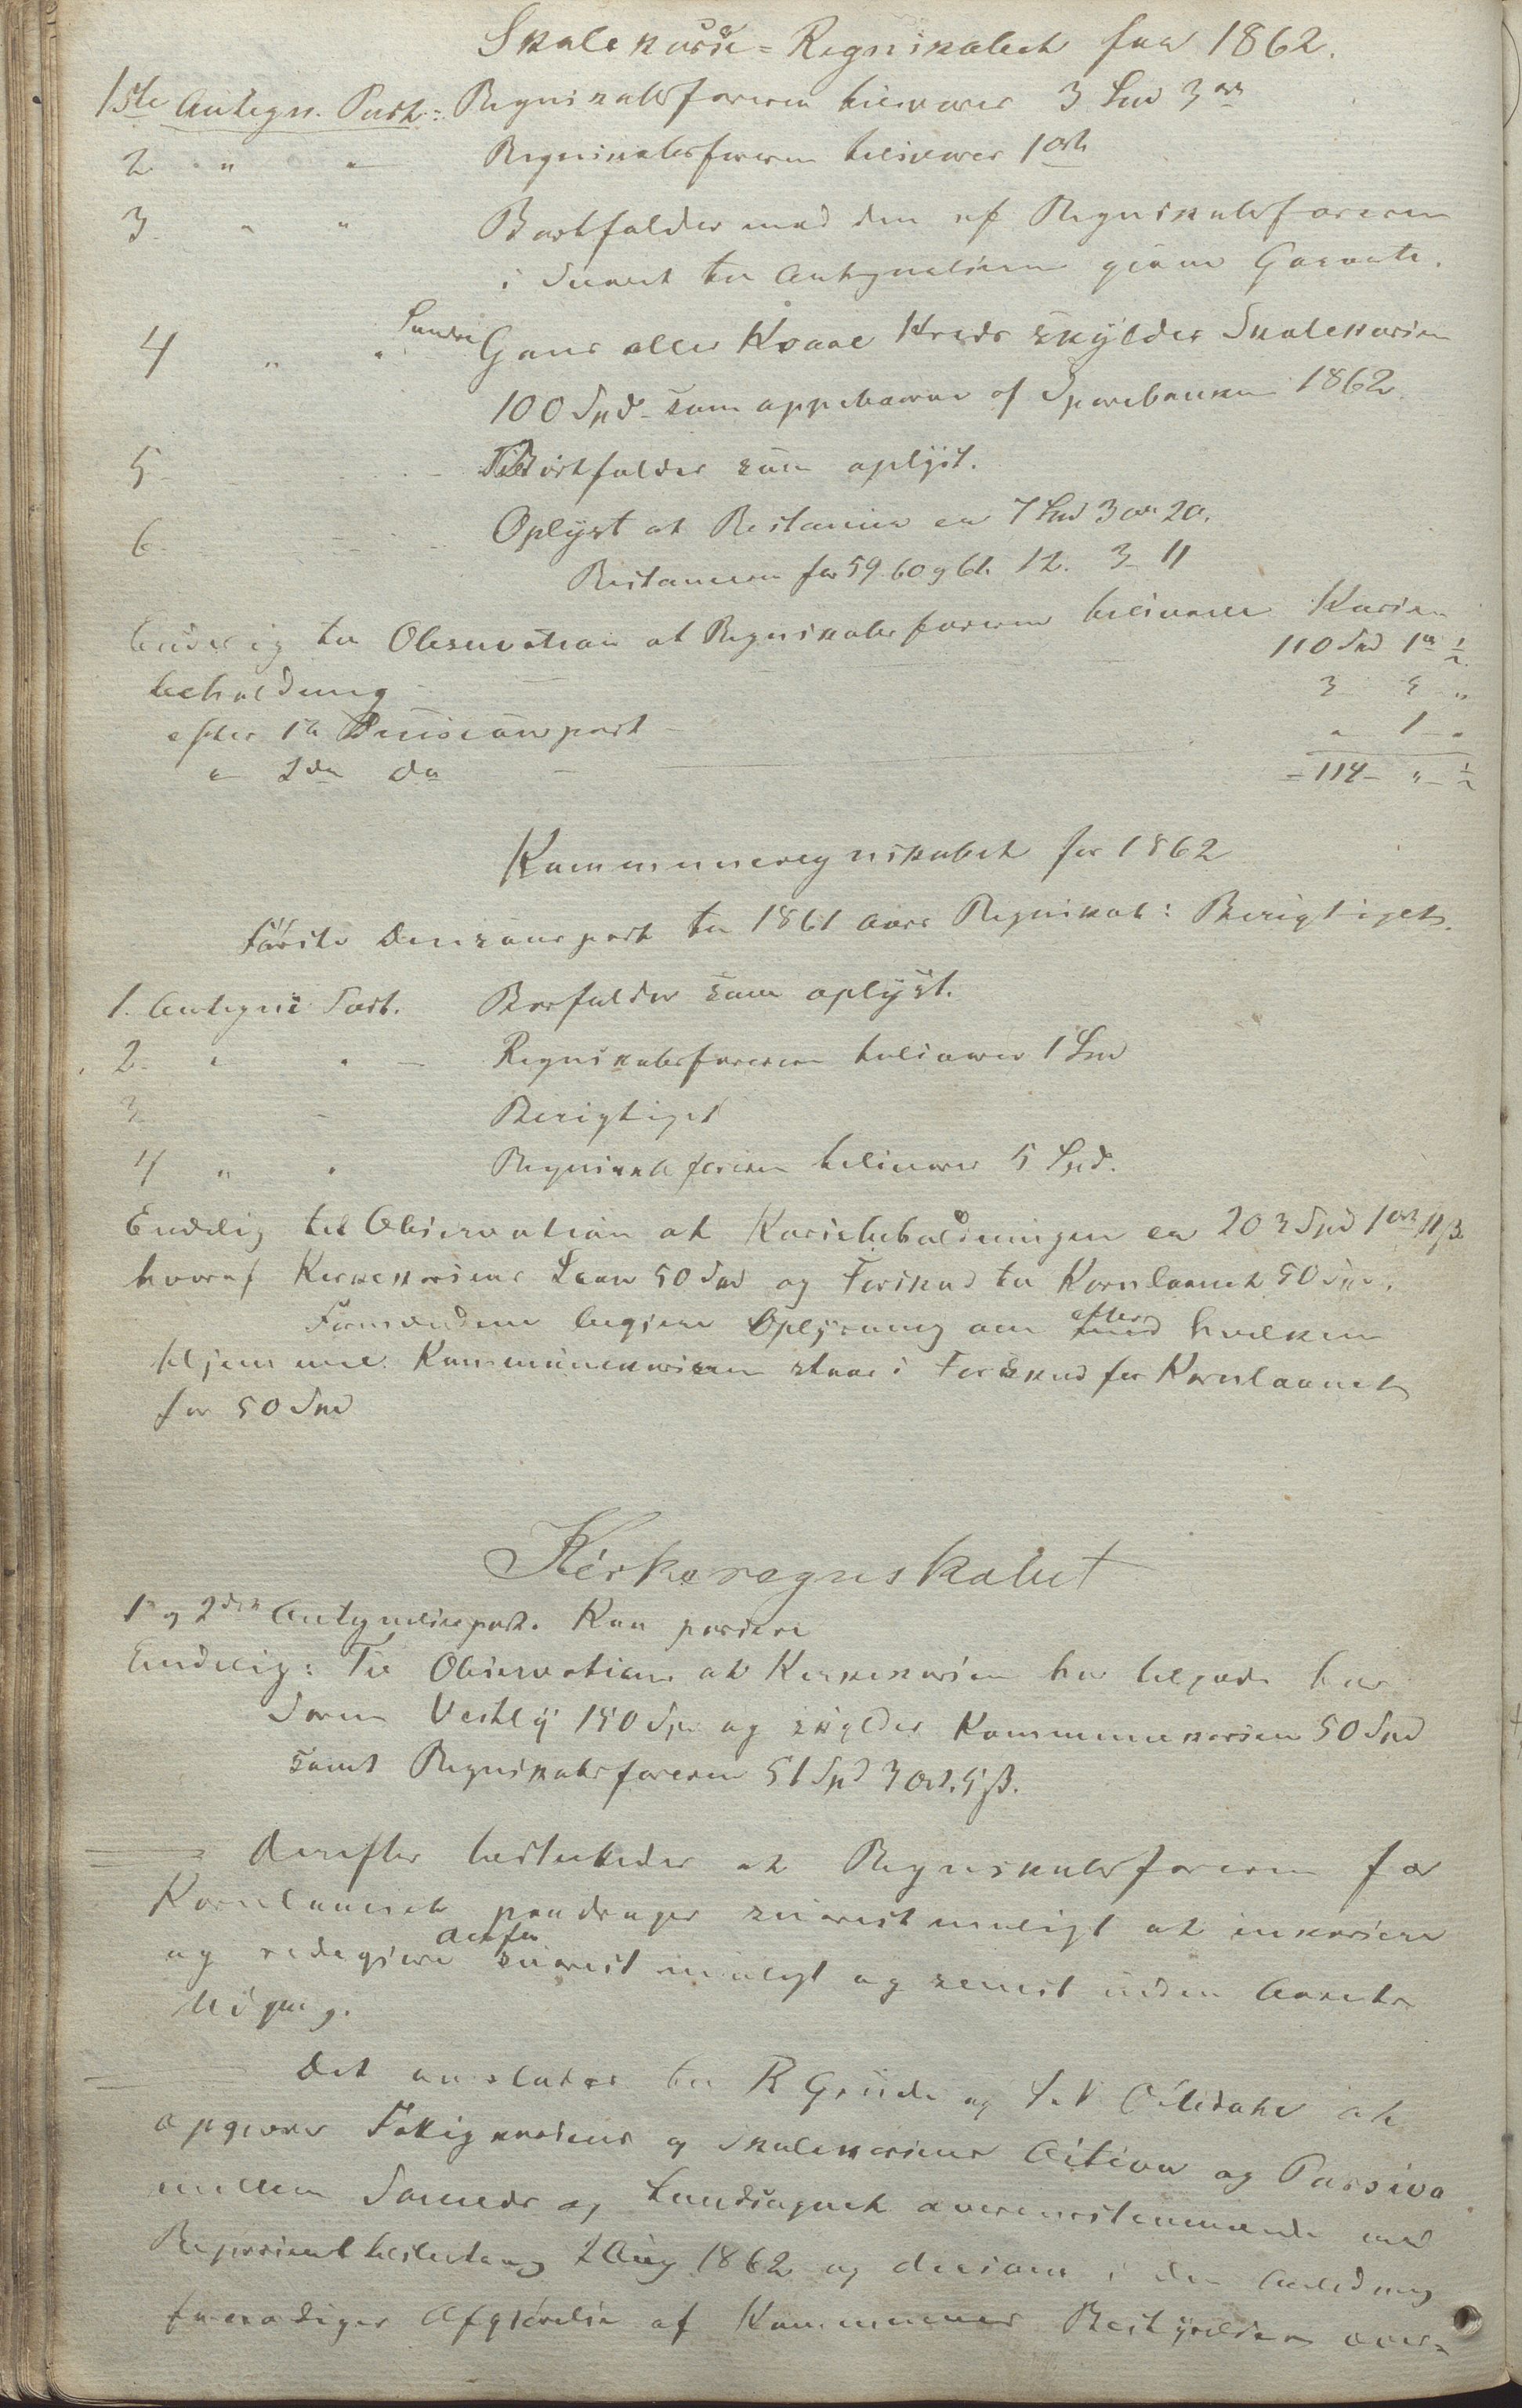 Skolekasse-Regnskabet for 1862.
1ste Antegn. Post: Regnskabsføreren tilsvarer 3 Spd 3 ort
2 " " Regnskabsføreren tilsvarer 1 ort
3 " " Bortfalder med den af Regnskabsføreren
i Svaret til Antegnelsen givne
4 " " Søndre Gans eller Kvaal Kreds skylder Skolekassen
100 Spd som oppebaaret af Sparebanken 1862
5 - Bortfalder som oplyst.
6 Oplyst at Restancen er 7 Spd 3 ort 20.
Restancen for 59. 60 og 61. 12. 3 11
Endelig til Observation at Regnskabsføreren tilsvarer Kasse
beholdning - 110 Spd 1 ort ½
efter 1te Decisionspost - 3 3 "
" 2den do - " 1 - "
= 114 - " - ½
Kommuneregnskabet for 1862
Første Decisionspost til 1861 Aars Regnskab: Berigtiget.
1. Antegns Post. Borfalder som oplyst.
2 " " - Regnskabsføreren tilsvarer 1 Spd
3 - Berigtiget
4 " " Regnskabsføreren tilsvarer 5 Spd.
Endelig til Observation at Kassebeholdningen er 203 Spd 1 ort 11 ß.
hvoraf Kirkekassens Laan 50 Spd og Forskud til Kornlaanet 50 Spd.
Formændene begjere Oplysning om efter hvilken
Hjemmel Kommunekassen staar i Forskud for Kornlaanet
for 50 Spd
Kirkeregnskabet
1te og 2den Antegnelsespost. Kan passere
Endelig: Til Observation at Kirkekassen har tilgode hos
Søren Vestly 150 Spd og skylder Kommunekassen 50 Spd
samt Regnskabsføreren 51 Spd 3 Ort. 5 ß.
Derefter besluttedes at Regnskabsføreren for
Kornlaanet paadrages snarest muligt at inkassere
og redegjøre derfor snarest muligt og senest inden Aarets
Udgang.
Det overlades til R Grude og at
opgjøre Fattigkassens og Skolekassens Activa og Passiva
mellem Sognets og overensstemmende med
Repræsentbeslutning 2 Aug 1862 og decisive i den Anledning
foranstiger Afgjørelse af Kommunens Bestyrelse over-